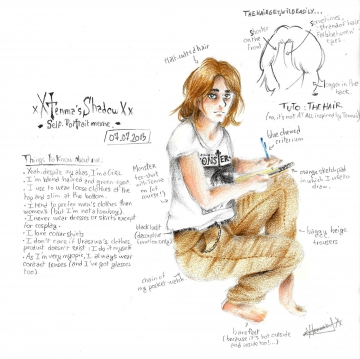 THE HAIR GETS WILD EASILY...
shorter on the front
sometimes, strands of hair fall between my eyes
longer in the back
TUTO : THE HAIR
(no, it's not AT ALL inspired by Tenma)
xXTenma's ShadowXx
- Self Portrait meme -
07.07.2013
Things To Know About me :
- Yeah, despite my abs, I'm a Girl
- I'm blond haired and green eyed
- I use to wear loose clothes at the top and slim at the bottom.
- I tend to prefer men's clothes than women's (but I'm not a tomboy)
- I never wear dresses or skirts except for cosplay.
- I love cover shirts
- I don't care if Urasawa's clothes product doesn't exist : I do it myself
- As I'm very myopic, I always wear contact lenses (and I've got glasses too).
Monster tee-shirt
MONSTER
black belt
(decorative function only)
chain of my pocket watch
blue chewed criterium
manga sketch-pad in which I use to draw.
baggy beige trousers
bare feet
(because it's hot outside and inside too!...)